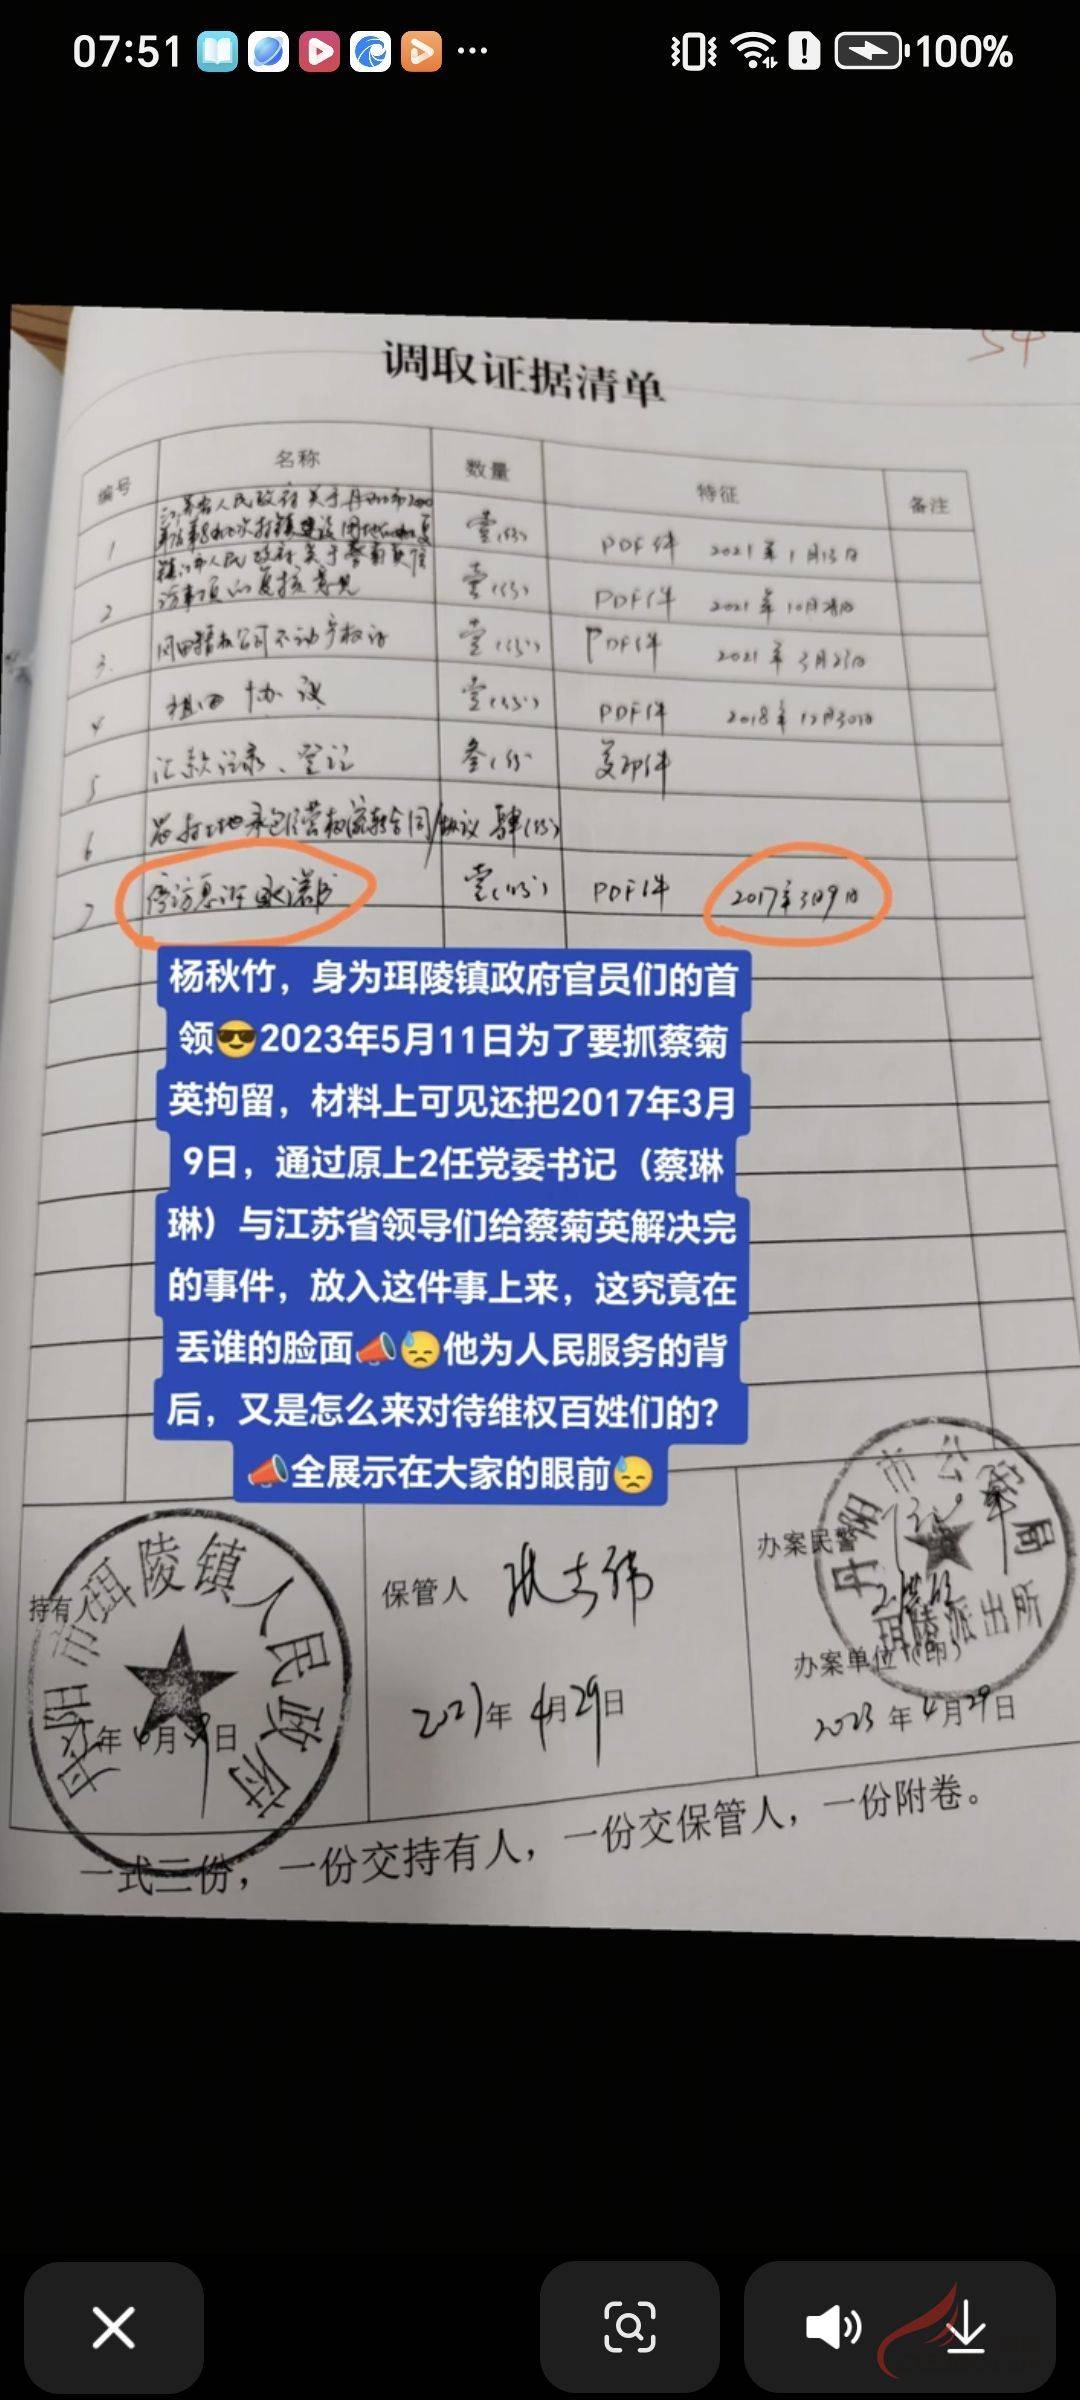 07:51
100%
54
调取证据清单
编号 名称 数量 特征 备注
1 江苏省人民政府关于丹阳市200
壹(份) PDF件 2021年1月13日
2 镇江市人民政府关于蔡菊英信
访事项的复核意见 壹(份) PDF件 2021年10月28日
3. 不动产权证 壹(份) PDF件 2021年3月23日
4 租田协议 壹(份) PDF件 2018年12月30日
5 汇款记录、登记 叁(份) 复印件
6 农村土地承包经营权流转合同/协议 肆(份)
7 停访息诉承诺书 壹(份) PDF件 2017年3月9日
杨秋竹，身为珥陵镇政府官员们的首
领😎2023年5月11日为了要抓蔡菊
英拘留，材料上可见还把2017年3月
9日，通过原上2任党委书记（蔡琳
琳）与江苏省领导们给蔡菊英解决完
的事件，放入这件事上来，这究竟在
丢谁的脸面📣😓他为人民服务的背
后，又是怎么来对待维权百姓们的？
📣全展示在大家的眼前😓
持有人
丹阳市珥陵镇人民政府
年 月 日
保管人
2023年4月29日
办案民警
丹阳市公安局
珥陵派出所
办案单位（印）
2023年4月29日
一式三份，一份交持有人，一份交保管人，一份附卷。